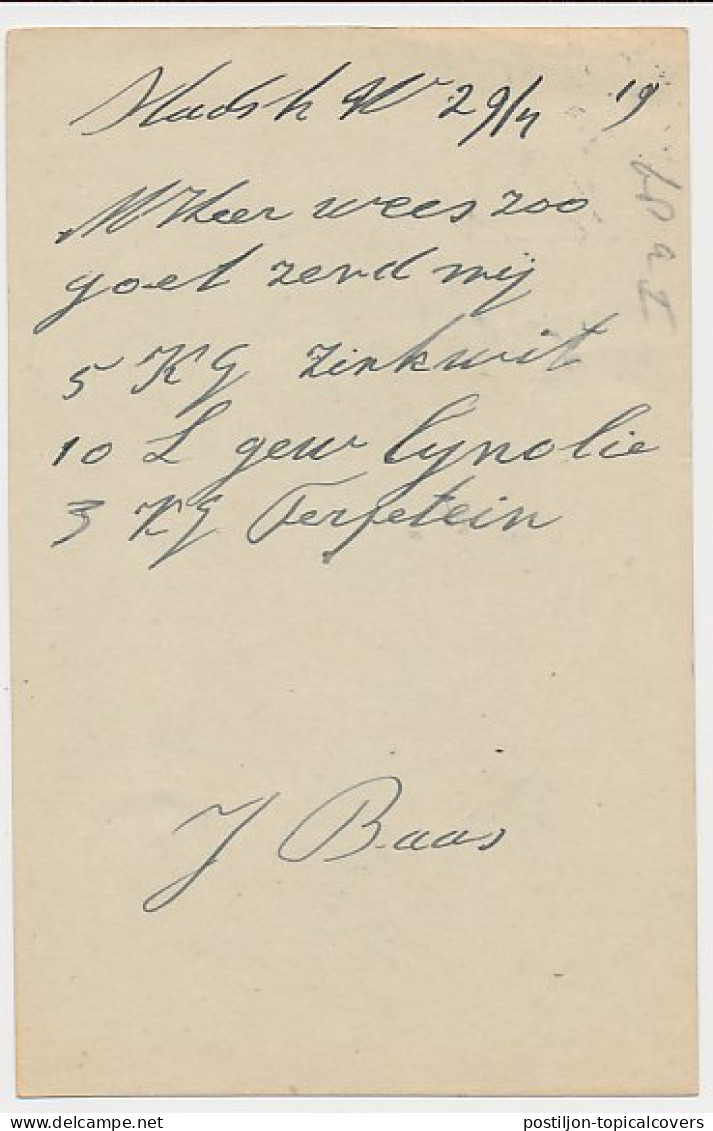 Stadsk W 29/4 19
M Heer wees zoo
goet zend mij
5 KG Zinkwit
10 L gew Lynolie
3 KG Terpetein
J Baas
postiljon-topicalcovers